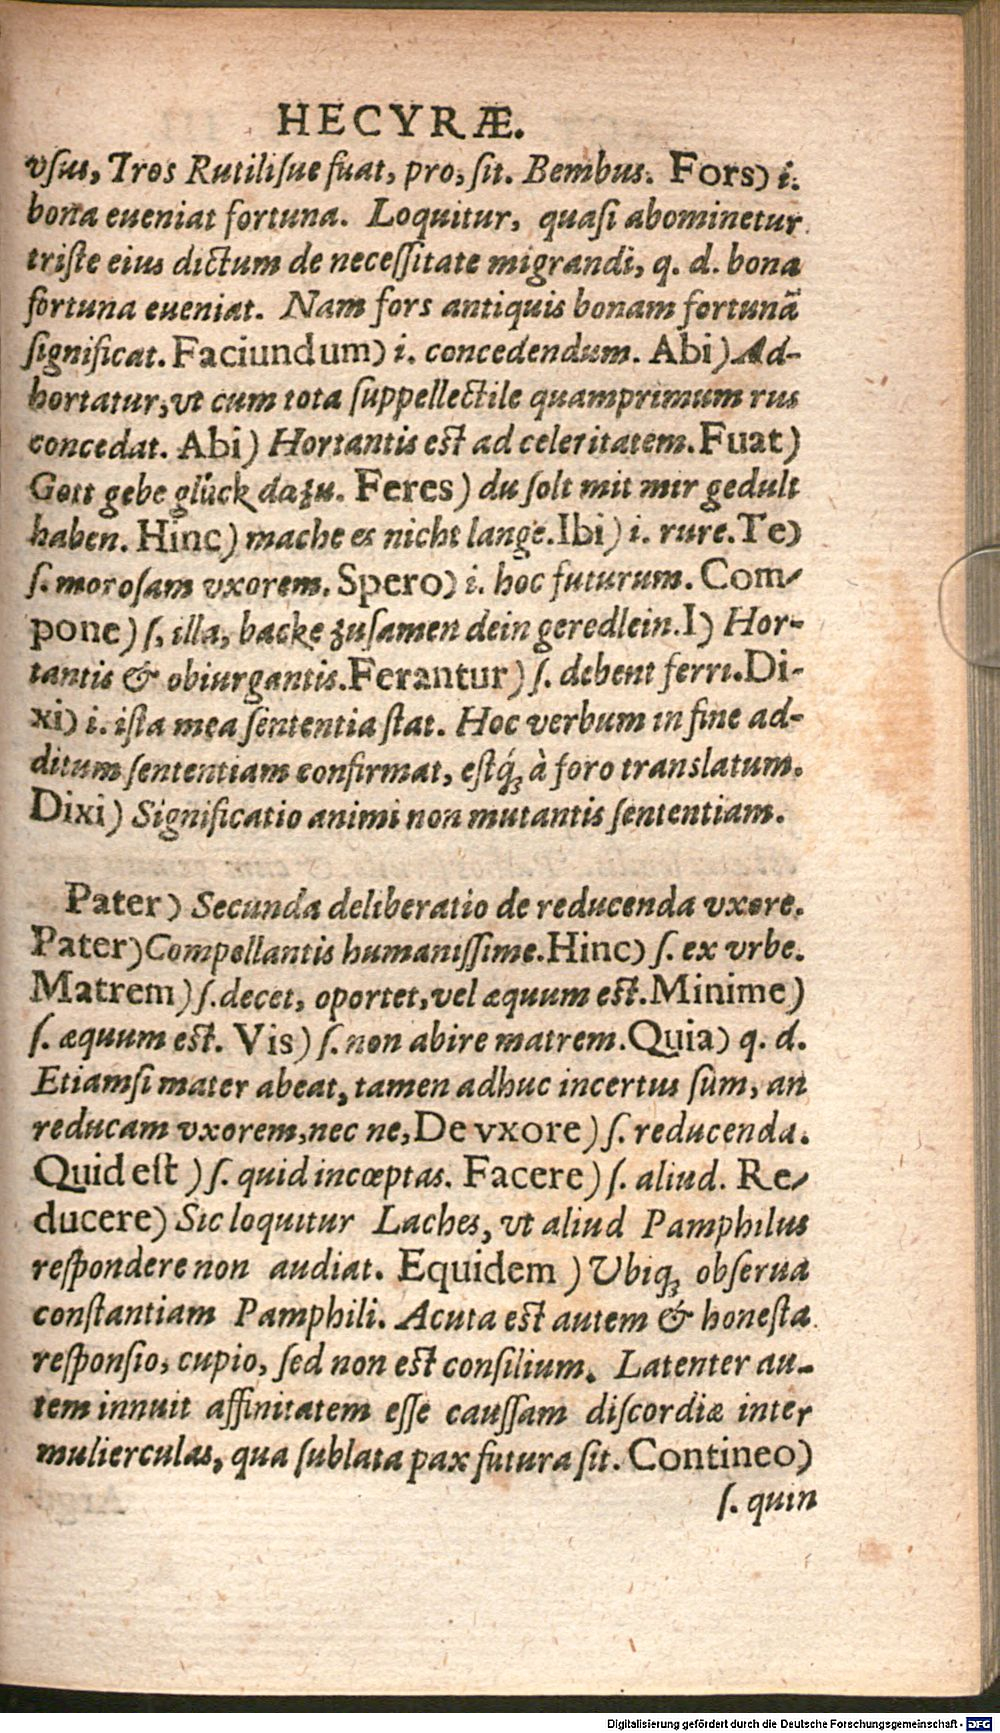 HECYRÆ.
vſus, Tros Rutiliſue fuat, pro, ſit. Bembus. Fors) i.
bona eueniat fortuna. Loquitur, quaſi abominetur
triſte eius dictum de neceſſitate migrandi, q. d. bona
fortuna eueniat. Nam fors antiquis bonam fortunã
ſignificat. Faciundum) i. concedendum. Abi) Ad-
hortatur, vt cum tota ſuppellectile quamprimum rus
concedat. Abi) Hortantis eſt ad celeritatem. Fuat)
Gott gebe glück dazu. Feres) du ſolt mit mir gedult
haben. Hinc) mache es nicht lange. Ibi) i. rure. Te)
ſ. moroſam vxorem. Spero) i. hoc futurum. Com-
pone) ſ. illa, backe zuſamen dein geredlein. I) Hor-
tantis & obiurgantis. Ferantur) ſ. debent ferri. Di-
xi) i. iſta mea ſententia ſtat. Hoc verbum in fine ad-
ditum ſententiam confirmat, eſtq́ꝫ à foro translatum.
Dixi) Significatio animi non mutantis ſententiam.
Pater) Secunda deliberatio de reducenda vxore.
Pater) Compellantis humaniſſime. Hinc) ſ. ex vrbe.
Matrem) ſ. decet, oportet, vel æquum eſt. Minime)
ſ. æquum eſt. Vis) ſ. non abire matrem. Quia) q. d.
Etiamſi mater abeat, tamen adhuc incertus ſum, an
reducam vxorem, nec ne, De vxore) ſ. reducenda.
Quid eſt) ſ. quid incœptas. Facere) ſ. aliud. Re-
ducere) Sic loquitur Laches, vt aliud Pamphilus
reſpondere non audiat. Equidem) Ubiqꝫ obſerua
conſtantiam Pamphili. Acuta eſt autem & honeſta
reſponſio, cupio, ſed non eſt conſilium. Latenter au-
tem innuit affinitatem eſſe cauſſam diſcordiæ inter
mulierculas, qua ſublata pax futura ſit. Contineo)
ſ. quin
Digitalisierung gefördert durch die Deutsche Forschungsgemeinschaft - DFG